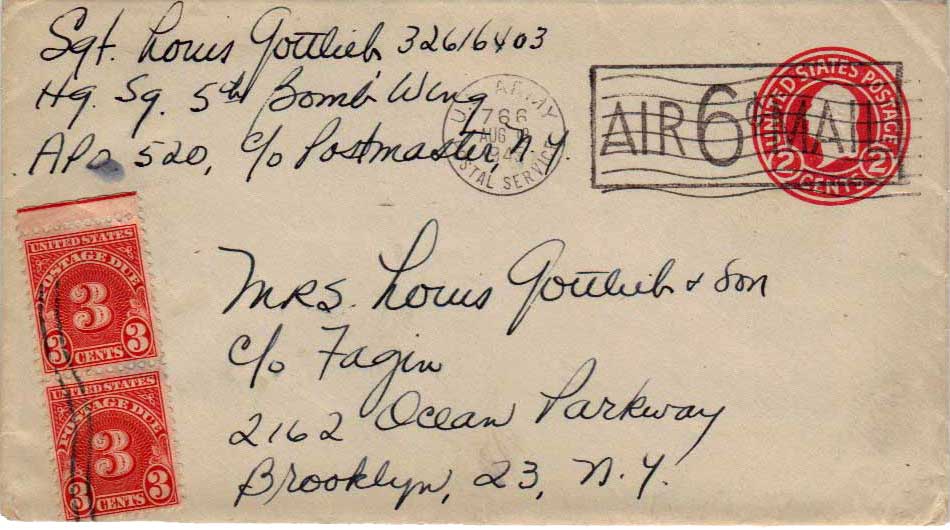 Sgt. Louis Gottlieb 32616403
Hq. Sq. 5th Bomb Wing
APO 520, c/o Postmaster, N.Y.
U.S. ARMY
766
AUG
POSTAL SERVICE
AIR 6¢ MAIL
UNITED STATES POSTAGE
2 2
CENTS
UNITED STATES
POSTAGE DUE
3
3 CENTS 3
UNITED STATES
POSTAGE DUE
3
3 CENTS 3
Mrs. Louis Gottlieb & Son
c/o Fagin
2162 Ocean Parkway
Brooklyn, 23, N.Y.